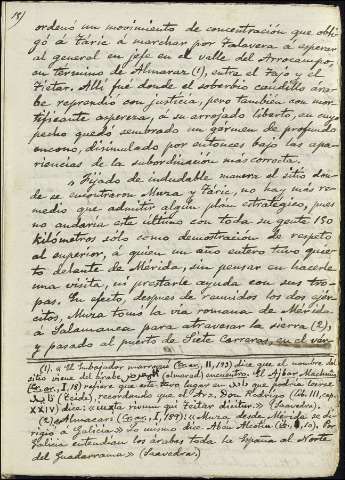 18)
ordenó un movimiento de concentración que obli-
gó á Táric á marchar por Talavera á esperar
al general en jefe en el valle del Arrocampo,
en término de Almaraz (1), entre el Tajo y el
Tietar. Allí fué donde el soberbio caudillo ára-
be reprendió con justicia, pero también con mor-
tificante aspereza, á su arrojado liberto, en cuyo
pecho quedó sembrado un gérmen de profundo
encono, disimulado por entonces bajo las apa-
riencias de la subordinación más correcta.
"Fijado de indudable manera el sitio don-
de se encontraron Muza y Táric, no hay más re-
medio que admitir algún plan estratégico, pues
no andaría este último con toda su gente 150
kilómetros sólo como demostración de respeto
al superior, á quien un año entero tuvo quie-
to delante de Mérida, sin pensar en hacerle
una visita, ni prestarle ayuda con sus tro-
pas. En efecto, despues de reunidos los dos ejér-
citos, Muza tomó la via romana de Mérida
á Salamanca para atravesar la sierra (2),
y pasado al puerto de Siete Carreras, en el
(1). «El Embajador marroquí (II, 193) dice que el nombre del
sitio viene del árabe (almarad) encuentro. El Ajbar Machmúa
(I, 18) refiere que este tuvo lugar en que podría leerse
(Teide), recordando que el Arz. Don Rodrigo (lib. III, cap.
XXIV) dice: «iuxta rivum qui Teitar dicitur.» (Saavedra).
(2) «Almacari (I, 189): «Muza desde Mérida se di-
rigió á Galicia.» Lo mismo dice Abén Alcotía. Por
Galicia entendían los árabes toda la España al Norte
del Guadarrama» (Saavedra).